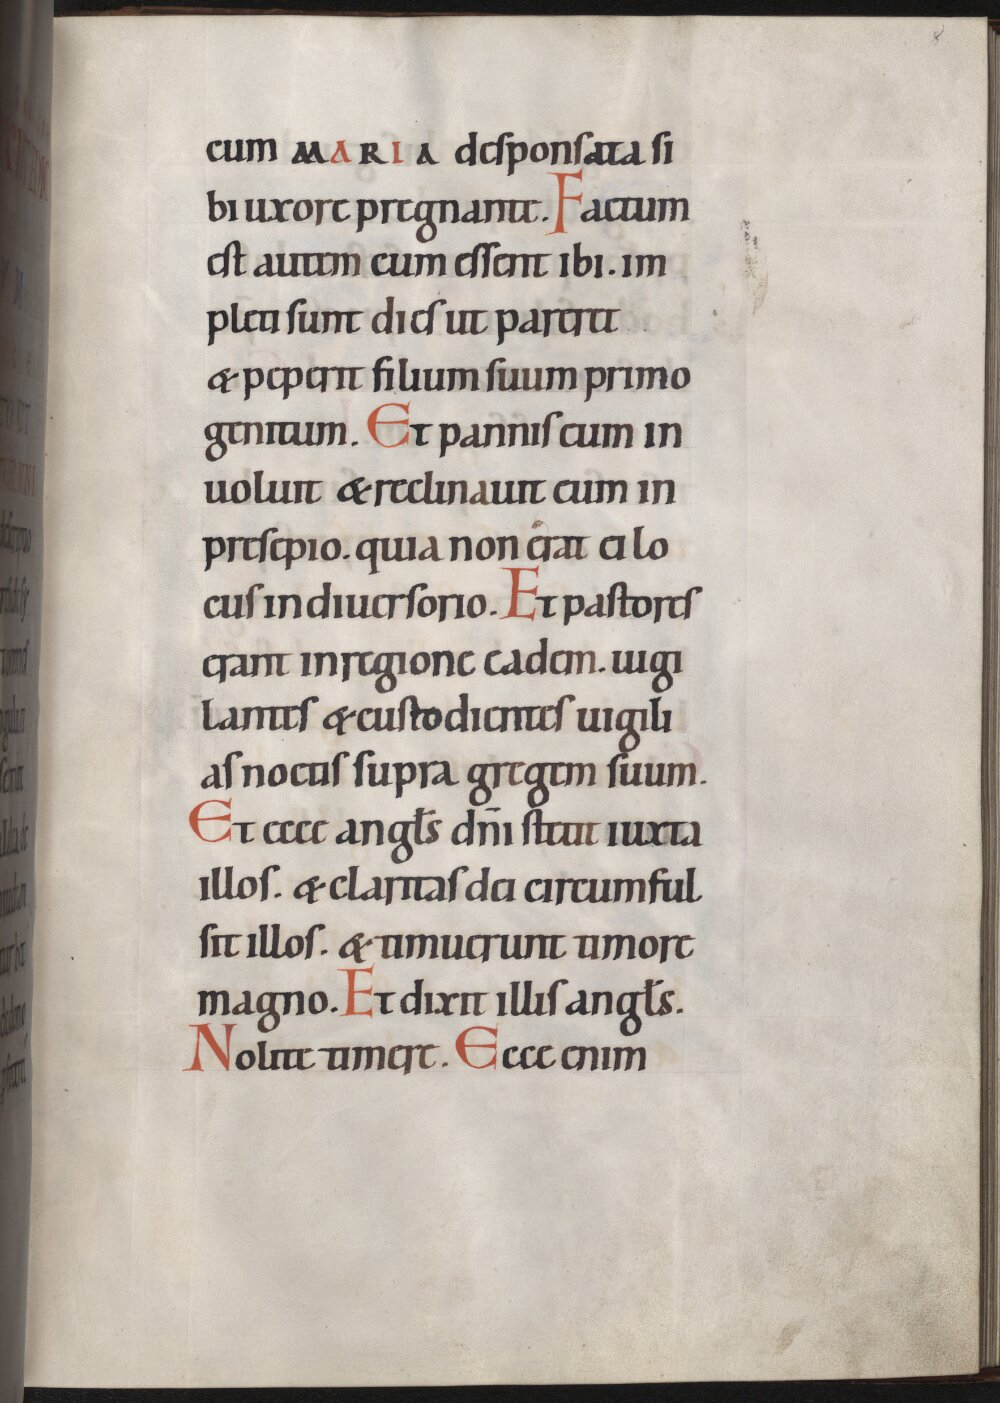 8
cum MARIA desponsata si
bi uxore pregnante. Factum
est autem cum essent ibi. im
pleti sunt dies ut pareret
& peperit filium suum primo
genitum. Et pannis eum in
uoluit & reclinauit eum in
presepio. quia non erat ei lo
cus in diuersorio. Et pastores
erant in regione eadem. uigi
lantes & custodientes uigili
as noctis supra gregem suum.
Et ecce angl̅s dn̅i stetit iuxta
illos. & claritas dei circumful
sit illos. & timuerunt timore
magno. Et dixit illis angl̅s.
Nolite timere. Ecce enim